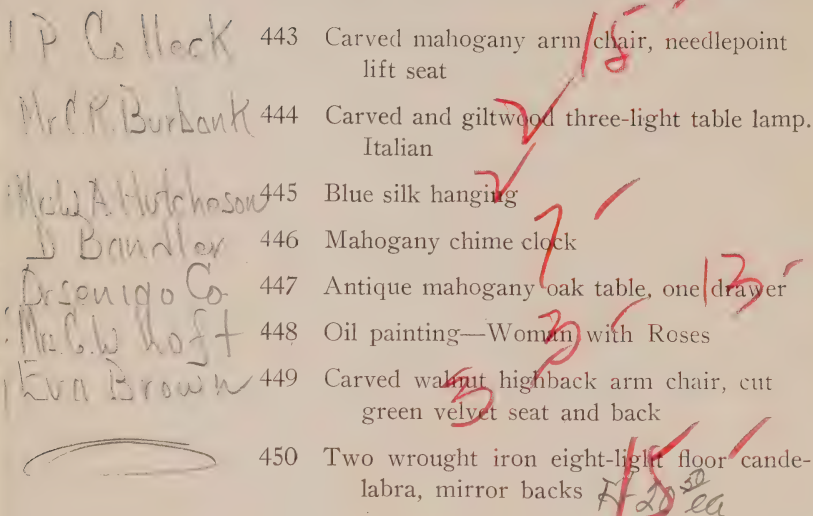 P Colleck 443 Carved mahogany arm chair, needlepoint 15
lift seat
Mr C.R. Burbank 444 Carved and giltwood three-light table lamp. 2
Italian
A Hutcheson 445 Blue silk hanging 2
D Bandler 446 Mahogany chime clock 7
Co. 447 Antique mahogany oak table, one drawer 13
Mrs. C.W. Hoft 448 Oil painting—Woman with Roses
Eva Brown 449 Carved walnut highback arm chair, cut 5
green velvet seat and back
450 Two wrought iron eight-light floor cande-
labra, mirror backs 15 20 50 ea